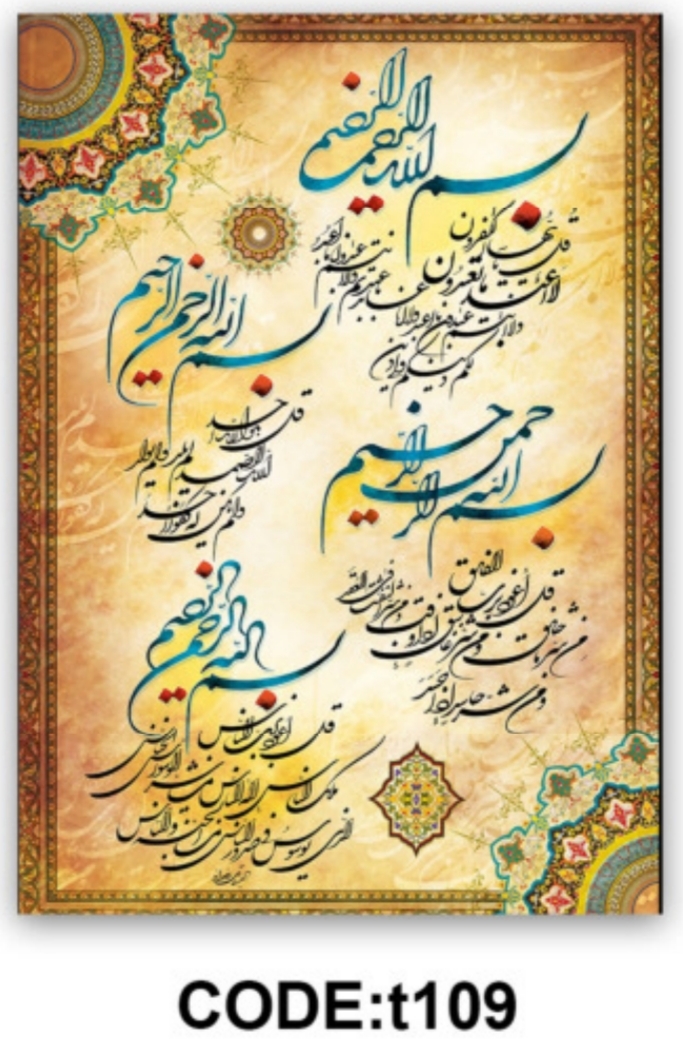 بسم الله الرحمن الرحیم
قل یا ایها الکفرون
لا اعبد ما تعبدون
ولا انتم عبدون ما اعبد
ولا انا عابد ما عبدتم
ولا انتم عبدون ما اعبد
لکم دینکم ولی دین
بسم الله الرحمن الرحیم
قل هو الله احد
الله الصمد لم یلد ولم یولد
ولم یکن له کفوا احد
بسم الله الرحمن الرحیم
قل اعوذ برب الفلق
من شر ما خلق ومن شر غاسق اذا وقب ومن شر النفثت فی العقد
ومن شر حاسد اذا حسد
بسم الله الرحمن الرحیم
قل اعوذ برب الناس
ملک الناس اله الناس من شر الوسواس الخناس
الذی یوسوس فی صدور الناس من الجنة والناس
CODE:t109